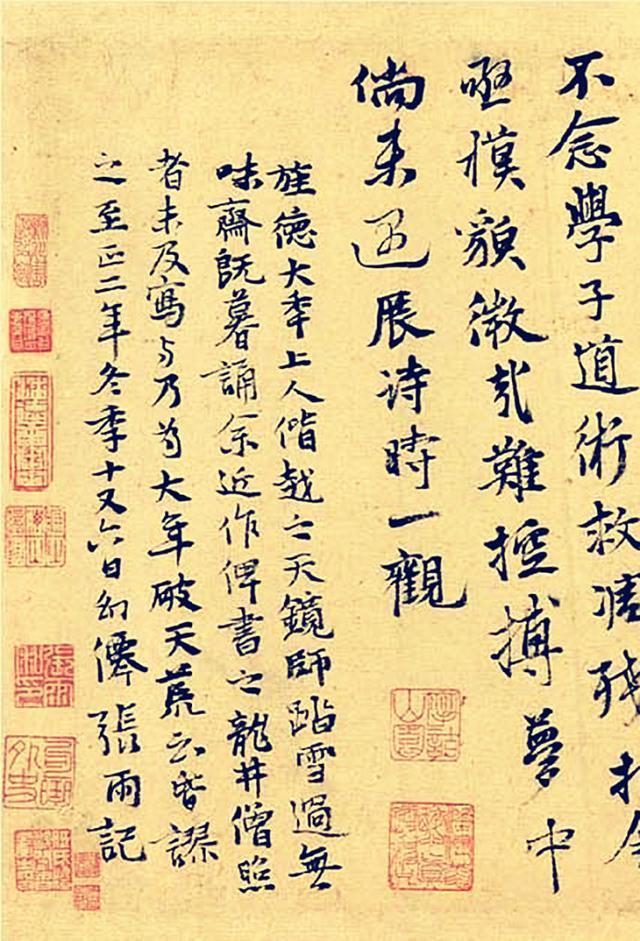 不念學子道術救凍殘抱
亟模貌微哉難控摶夢中
倘未遇展诗時一觀
旌德大年上人偕越之天鏡師踏雪過無
味齋既暮誦余近作俾書之龍井僧照
者未及寫与乃為大年破天荒云皆謬
之至正二年冬季十又六日幻僊張雨記